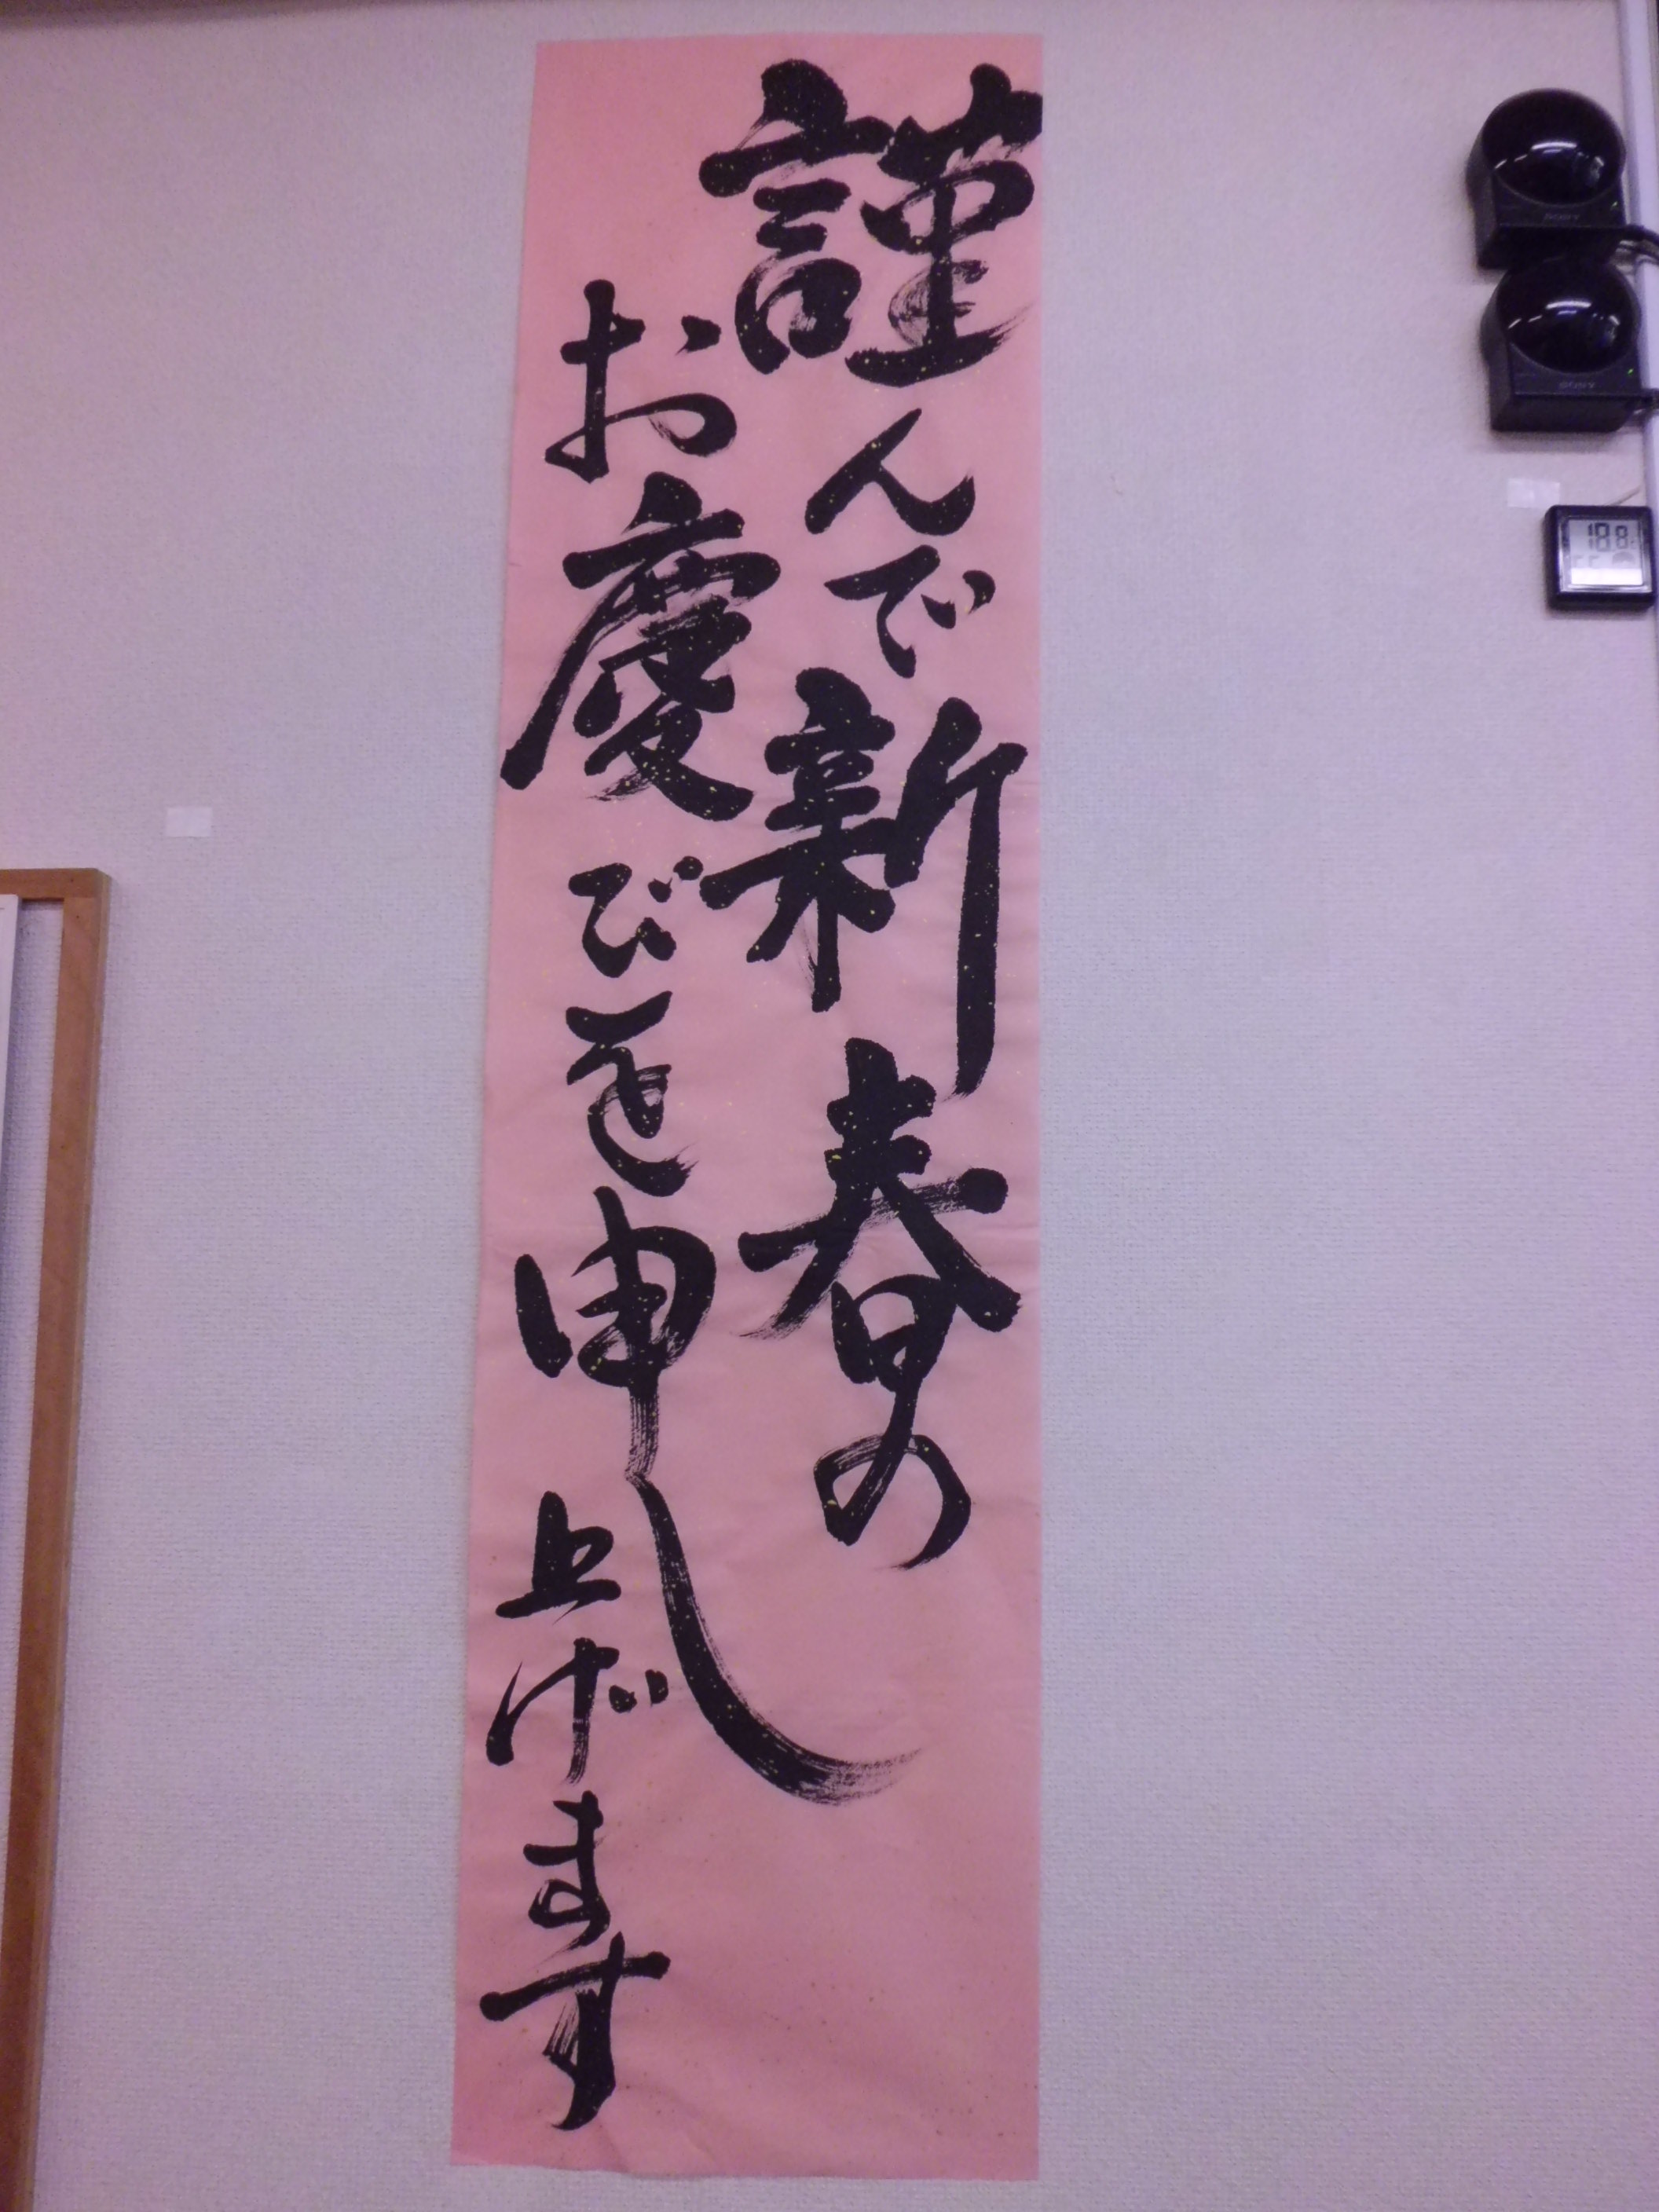 謹んで新春の
お慶びを申し上げます
SONY
SONY